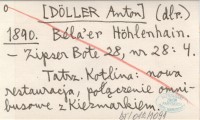 [DÖLLER Anton] (dlr.)
1890. Béla'er Höhlenhain.
– Zipser Bote 28, nr 28: 4.
Tatsz. Kotlina: nowa
restauracja, połączenie omni-
busowe z Kiezmarkiem.